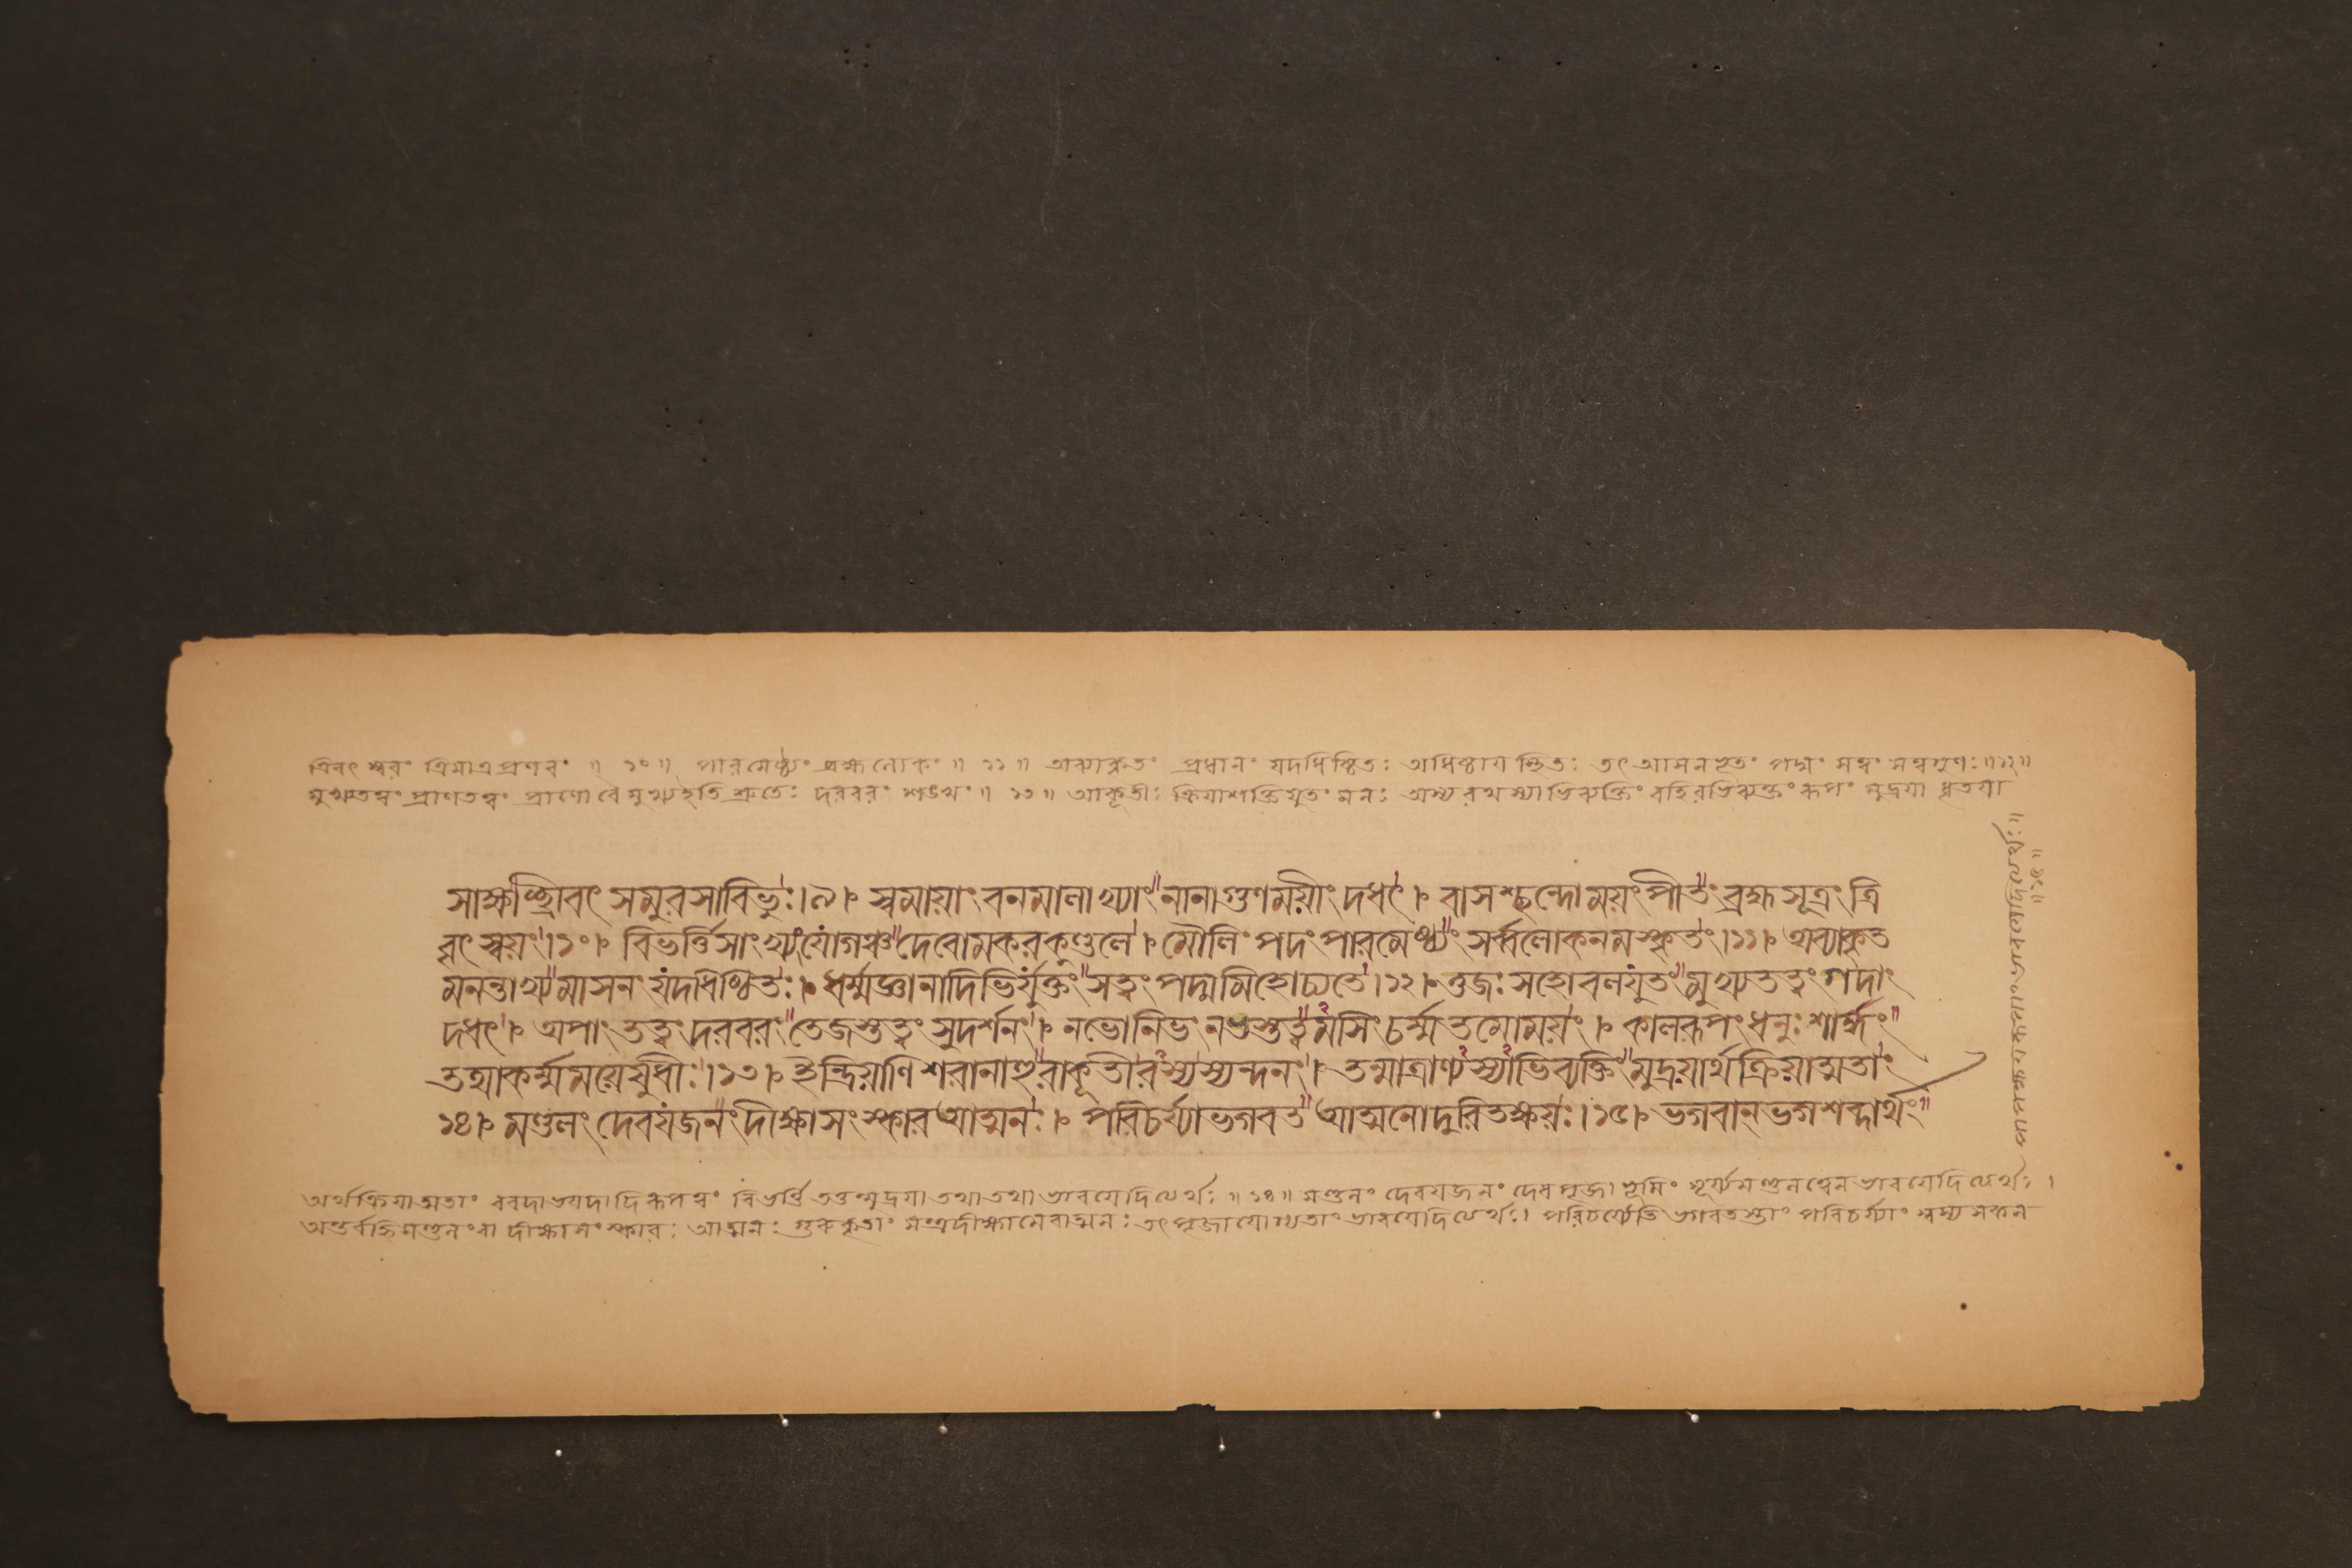 ত্রিবৃৎ স্বরং ত্রিমাত্রপ্রণবং ॥ ১০ ॥ পারমেষ্ঠ্যং ব্রহ্মলোকং ॥ ১১ ॥ অব্যাকৃতং প্রধানং যদধিষ্ঠিতঃ অধিষ্ঠায স্থিতঃ তৎ আসনভূতং পদ্মং সত্বং সত্বগুণঃ ॥ ১২ ॥
মুখ্যতত্বং প্রাণতত্বং প্রাণো বৈ মুখ্যইতি শ্রুতেঃ দরবরং শঙখং ॥ ১৩ ॥ আকূতীঃ ক্রিযাশক্তিযুতং মনঃ অস্য রথস্যাভিব্যক্তিং বহিরভিব্যক্তং রূপং মুদ্রযা ধৃতযা
সাক্ষাচ্ছ্রীবৎ সমুরসাবিভুঃ।৯। স্বমায়াং বনমালাখ্যাং নানাগুণময়ীং দধৎ। বাসশ্ছন্দোময়ং পীতং ব্রহ্মসূত্রং ত্রি
বৃৎ স্বয়ং।১০। বিভর্ত্তিসাংখ্যং যোগঞ্চ দেবোমকরকুণ্ডলে। মৌলিং পদং পারমেষ্ঠ্যং সর্ব্বলোকনমস্কৃতং।১১। অব্যাকৃত
মনন্তাখ্যমাসনং যদধিষ্ঠিতঃ। ধর্ম্মজ্ঞানাদিভির্যুক্তং সত্বং পদ্মমিহোচ্যতে।১২। ওজঃ সহোবলযুতং মুখ্যতত্বং গদাং
দধৎ। অপাং তত্বং দরবরং তেজস্তত্বং সুদর্শনং। নভোনিভং নভস্তত্বমসিং চর্ম্ম তমোময়ং। কালরূপং ধনুঃ শার্ঙ্গং
তথাকর্ম্মময়েষুধীঃ।১৩। ইন্দ্রিয়াণি শরানাহুরাকূতীরস্যস্যন্দনং। তন্মাত্রাণ্যস্যাভিব্যক্তিং মুদ্রয়ার্থক্রিয়াত্মতাং
১৪। মণ্ডলং দেবযজনং দীক্ষাসংস্কার আত্মনঃ। পরিচর্য্যাভগবত আত্মনোদুরিতক্ষয়ঃ।১৫। ভগবান্ ভগশব্দার্থং
অর্থক্রিযাত্মতাং বরদাভযদাদিরূপত্বং বিভর্ত্তি তত্তন্মুদ্রযা তথা তথা ভাবযেদিত্যর্থঃ ॥ ১৪ ॥ মণ্ডলং দেবযজনং দেবপূজাভূমিং সূর্য্যমণ্ডলত্বেন ভাবযেদিত্যর্থঃ।
অন্তর্বহ্নিমণ্ডলং বা দীক্ষাসংস্কারঃ আত্মনঃ গুরুকৃতাং মন্ত্রদীক্ষামেবাত্মনঃ তৎপূজাযোগ্যতাং ভাবযেদিত্যর্থঃ। পরিচর্য্যেতি ভগবতস্তাং পরিচর্য্যাং স্বস্য সকল
॥১৫॥